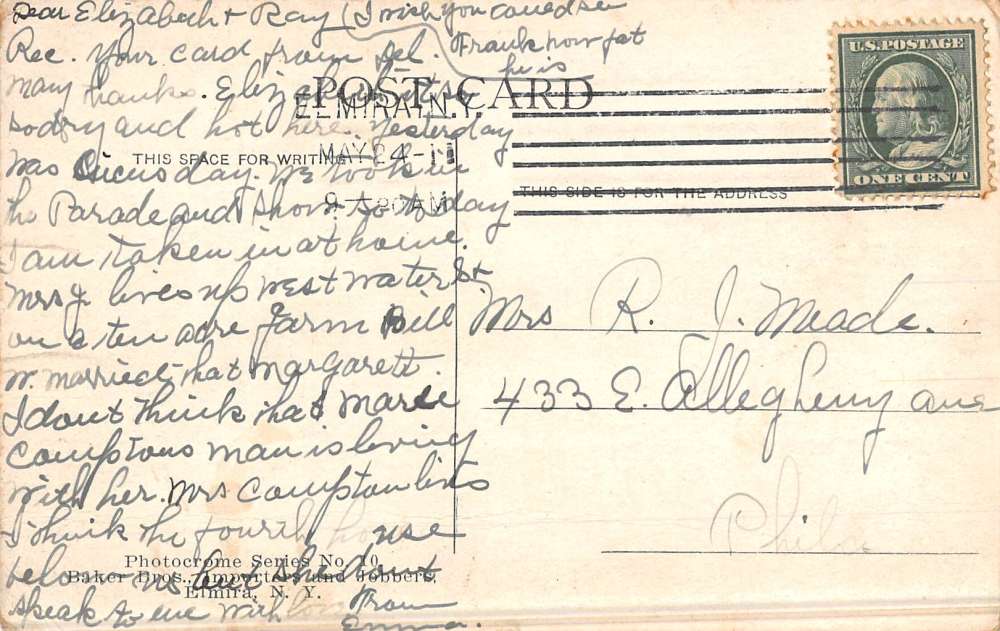 Dear Elizabeth + Ray (I wish you coued see
Frank how fat
he is
Rec. your card from Del.
many thanks. Elizabeth its
so dry and hot here. Yesterday
was Circus day. We took in
the Parade and Show so to day
I am taken in at home.
Mrs J. lives up West Water St
on a ten acre farm Bill
W. married that Margarett.
I dont think that Marie
Comptons man is living
with her. Mrs Compton lives
I think the fourth house
below us but she dont
speak to me with
From
Emma.
POST CARD
THIS SPACE FOR WRITING
THIS SIDE IS FOR THE ADDRESS
ELMIRA, N.Y.
MAY 24 - 11
8 - AM
U.S. POSTAGE
ONE CENT
Mrs R. J. Meade.
433 E. Allegheny ave
Phila
Photocrome Series No. 10
Baker Bros., Importers and Jobbers,
Elmira, N. Y.